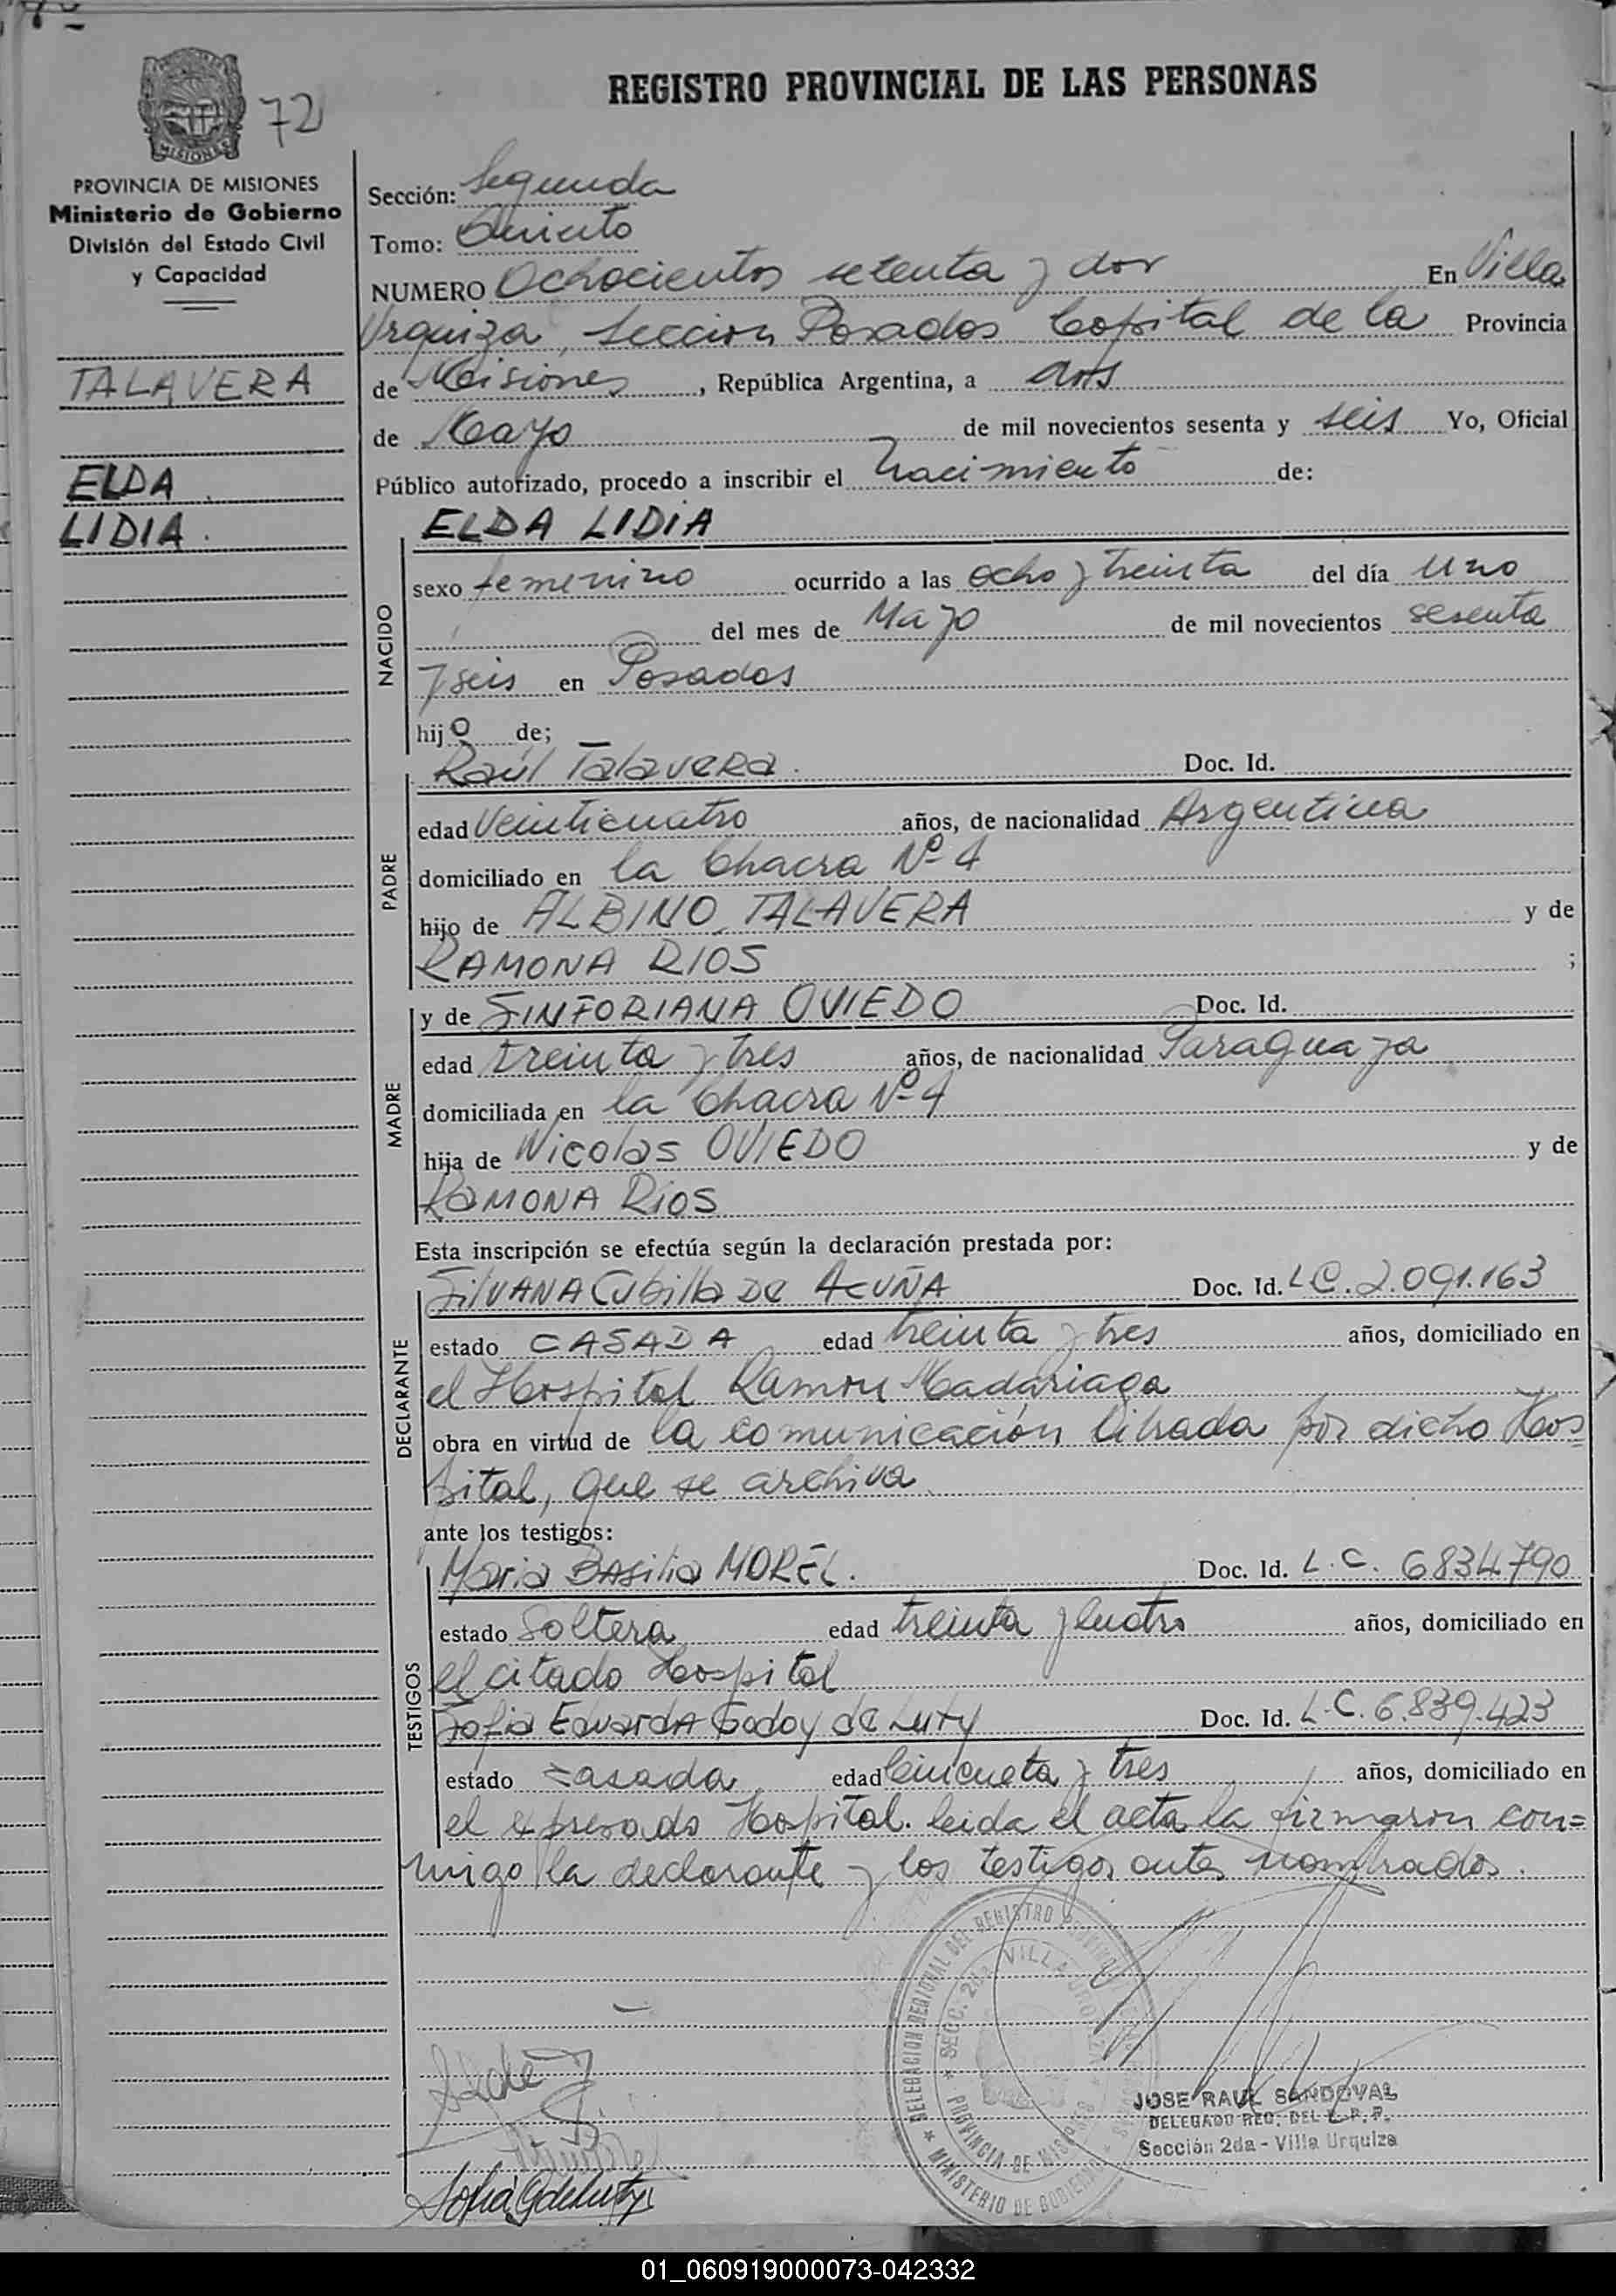 72
REGISTRO PROVINCIAL DE LAS PERSONAS
MISIONES
PROVINCIA DE MISIONES
Ministerio de Gobierno
División del Estado Civil
y Capacidad
TALAVERA
ELDA
LIDIA.
Sección: Segunda
Tomo: Quinto
NUMERO Ochocientos setenta y dos En Villa
Urquiza, Seccion Posadas Capital de la Provincia
de Misiones, República Argentina, a dos
de Mayo de mil novecientos sesenta y seis Yo, Oficial
Público autorizado, procedo a inscribir el nacimiento de:
ELDA LIDIA
NACIDO
sexo femenino ocurrido a las ocho y treinta del día uno
del mes de Mayo de mil novecientos sesenta
y seis en Posadas
hija de;
PADRE
Raúl Talavera. Doc. Id.
edad veinticuatro años, de nacionalidad Argentina
domiciliado en la Chacra Nº 4
hijo de ALBINO TALAVERA y de
RAMONA RIOS ;
MADRE
y de SINFORIANA OVIEDO Doc. Id.
edad treinta y tres años, de nacionalidad Paraguaya
domiciliada en la Chacra Nº 4
hija de Nicolas OVIEDO y de
RAMONA RiOS
Esta inscripción se efectúa según la declaración prestada por:
DECLARANTE
SilVANA Cubilla De ACUÑA Doc. Id. L C. 2.091.163
estado CASADA edad treinta y tres años, domiciliado en
el Hospital Ramon Madariaga
obra en virtud de la comunicación librada por dicho Hos=
pital, que se archiva
ante los testigos:
TESTIGOS
Maria BAsilia MOREL. Doc. Id. L.C. 6834790
estado Soltera edad treinta y cuatro años, domiciliado en
el citado Hospital
Sofia EDuardA Godoy de Luty Doc. Id. L.C. 6.839.423
estado casada edad Cincueta y tres años, domiciliado en
el expresado Hospital. leida el acta la firmaron con=
migo la declarante y los testigos antes nombrados.
DELEGACION REGIONAL DEL REGISTRO PROVINCIAL
SECC. 2da VILLA URQUIZA
PROVINCIA DE MISIONES
MINISTERIO DE GOBIERNO
JOSE RAUL SANDOVAL
DELEGADO REG. DEL R. P. P.
Sección 2da - Villa Urquiza
Sofia G de Luty
01_060919000073-042332